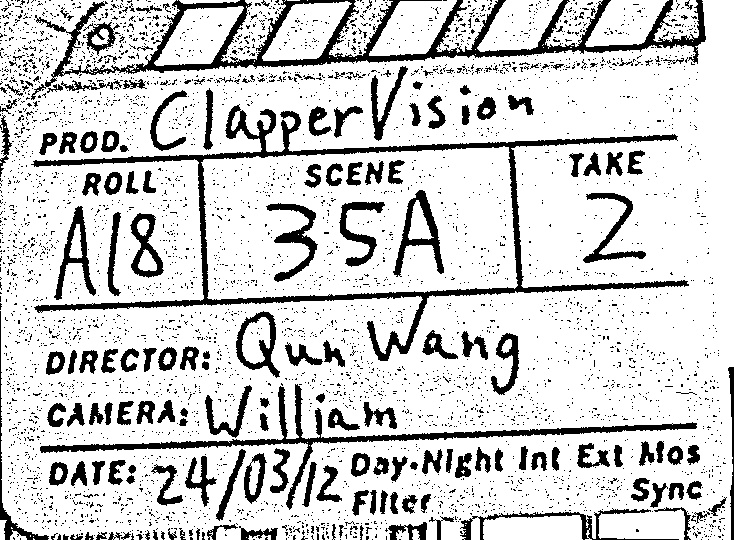 PROD. ClapperVision
ROLL SCENE TAKE
A18 35A 2
DIRECTOR: Qun Wang
CAMERA: William
DATE: 24/03/12 Day·Night Int Ext Mos
Filter Sync